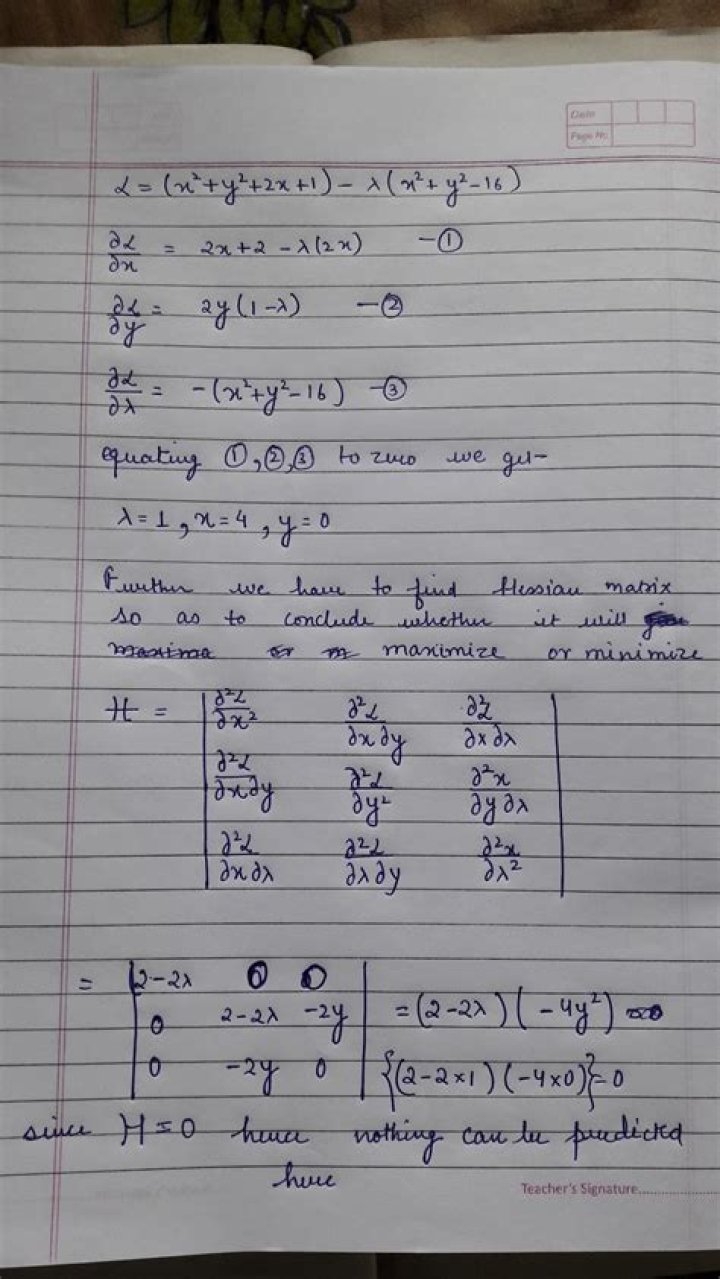 Date
Page No.
L = (x²+y²+2x+1) - λ(x²+y²-16)
∂L/∂x = 2x+2-λ(2x) -①
∂L/∂y = 2y(1-λ) -②
∂L/∂λ = -(x²+y²-16) -③
equating ①,②,③ to zero we get-
λ=1, x=4, y=0
Further we have to find Hessian matrix
so as to conclude whether it will
maxima or m maximize or minimize
H = | ∂²L/∂x² ∂²L/∂x∂y ∂²L/∂x∂λ |
| ∂²L/∂x∂y ∂²L/∂y² ∂²x/∂y∂λ |
| ∂²L/∂x∂λ ∂²L/∂λ∂y ∂²x/∂λ² |
= | 2-2λ 0 0 |
| 0 2-2λ -2y | = (2-2λ)(-4y²)
| 0 -2y 0 | {(2-2×1)(-4×0)}=0
since H=0 hence nothing can be predicted
here
Teacher's Signature..................